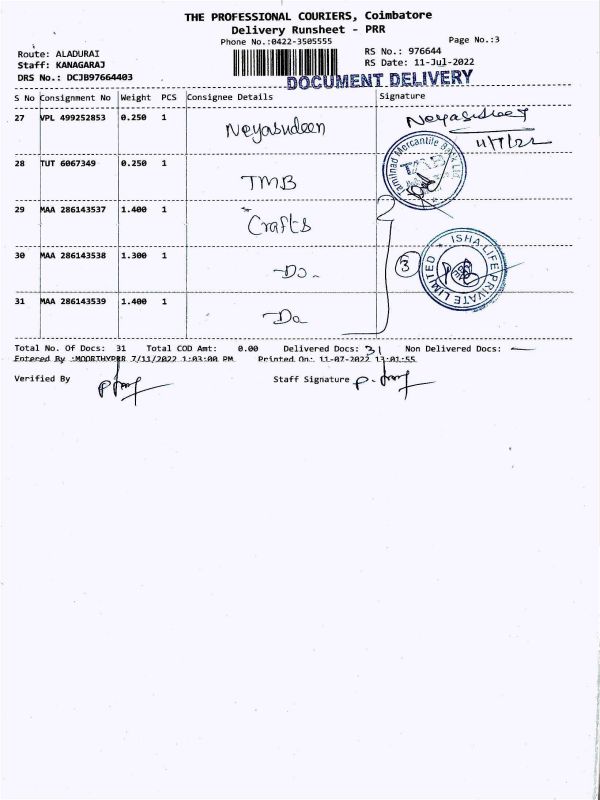 THE PROFESSIONAL COURIERS, Coimbatore
Delivery Runsheet - PRR
Phone No.:0422-3505555
Page No.:3
Route: ALADURAI
Staff: KANAGARAJ
DRS No.: DCJB97664403
RS No.: 976644
RS Date: 11-Jul-2022
DOCUMENT DELIVERY
S No Consignment No Weight PCS Consignee Details Signature
27 VPL 499252853 0.250 1 Neyasudeen Neyasudeen
11/7/22
28 TUT 6067349 0.250 1 TMB
Tamilnad Mercantile Bank Ltd
TMB
29 MAA 286143537 1.400 1 Crafts
30 MAA 286143538 1.300 1 -Do-
3
ISHA LIFE PRIVATE LIMITED
31 MAA 286143539 1.400 1 -Do
Total No. Of Docs: 31 Total COD Amt: 0.00 Delivered Docs: 31 Non Delivered Docs: —
Entered By :MOORTHYPRR 7/11/2022 1:03:00 PM Printed On: 11-07-2022 13:01:55
Verified By Staff Signature